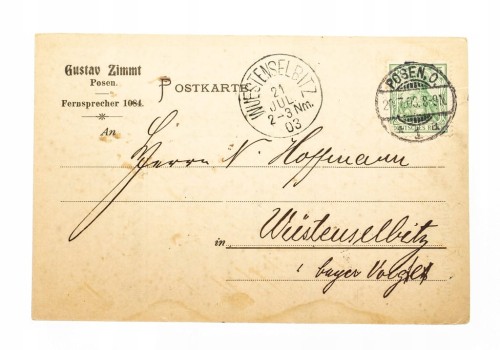 Gustav Zimmt
Posen.
Fernsprecher 1084.
POSTKARTE
WUESTENSELBITZ
21
JUL
2-3 Nm.
03
POSEN. O.
An
Herrn N. Hoffmann
in Wüstenselbitz
bayer